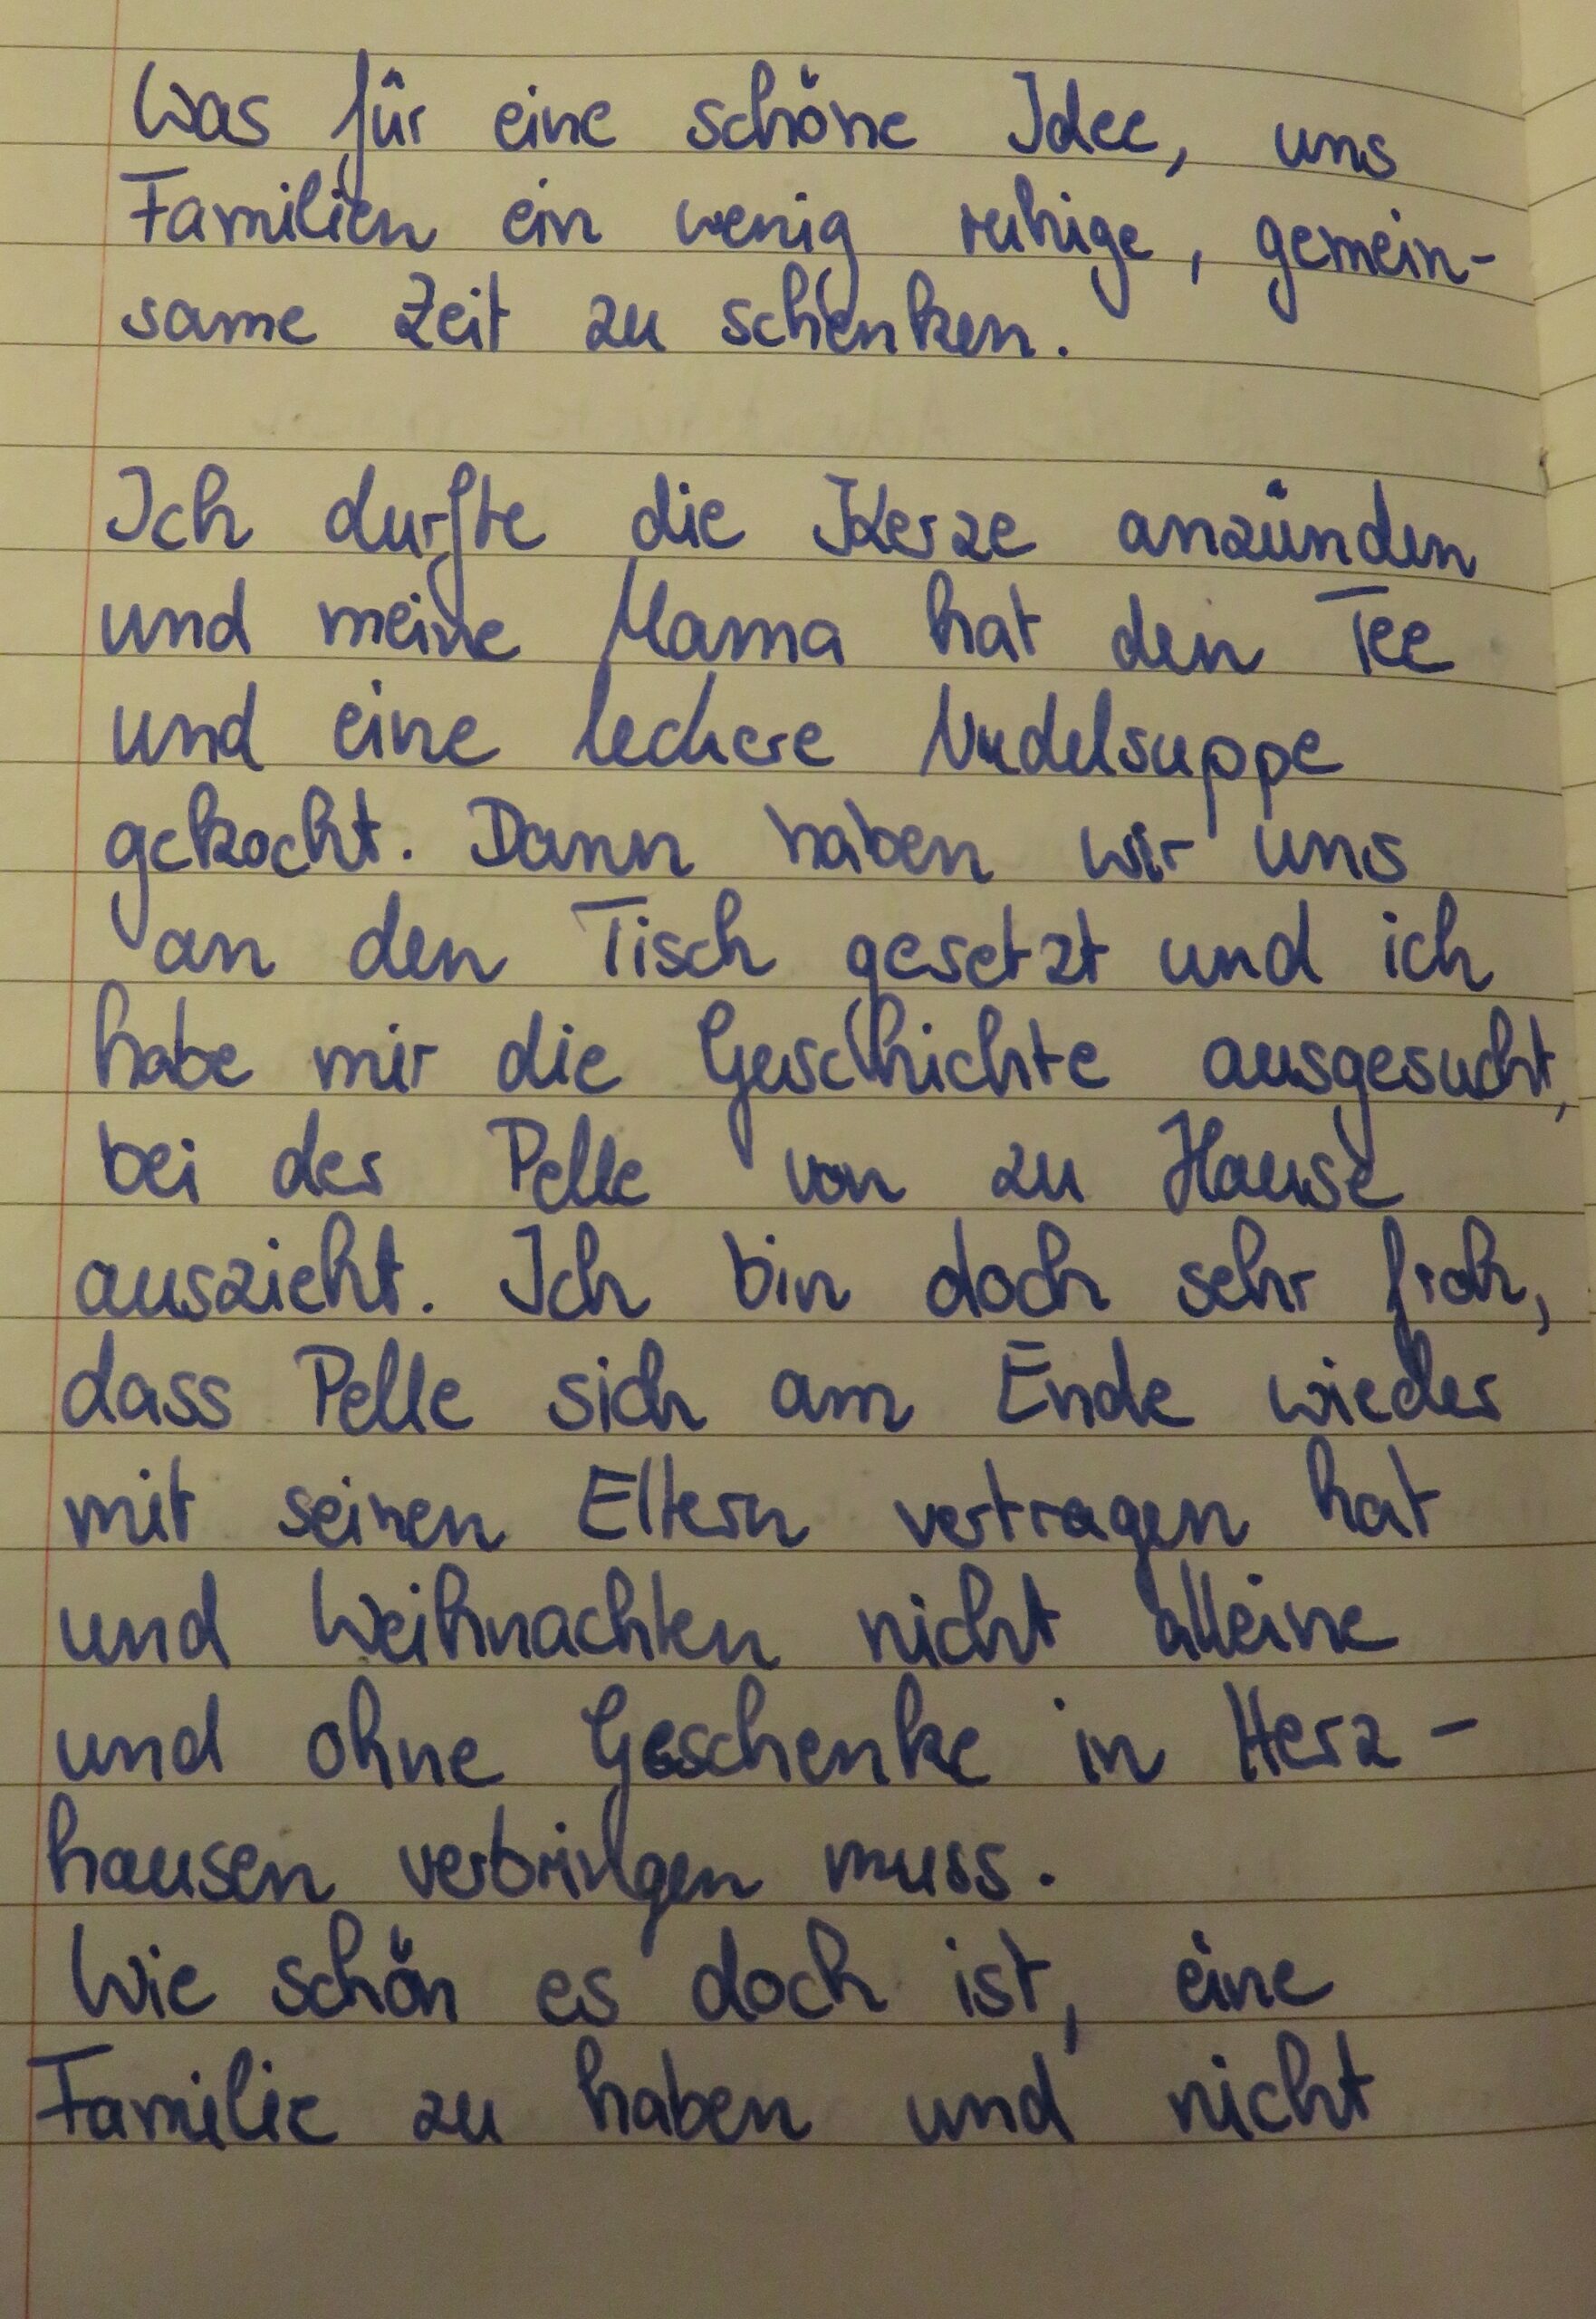 Was für eine schöne Idee, uns
Familien ein wenig ruhige, gemein-
same Zeit zu schenken.
Ich durfte die Kerze anzünden
und meine Mama hat den Tee
und eine leckere Nudelsuppe
gekocht. Dann haben wir uns
an den Tisch gesetzt und ich
habe mir die Geschichte ausgesucht,
bei der Pelle von zu Hause
auszieht. Ich bin doch sehr froh,
dass Pelle sich am Ende wieder
mit seinen Eltern vertragen hat
und Weihnachten nicht alleine
und ohne Geschenke in Herz-
hausen verbringen muss.
Wie schön es doch ist, eine
Familie zu haben und nicht